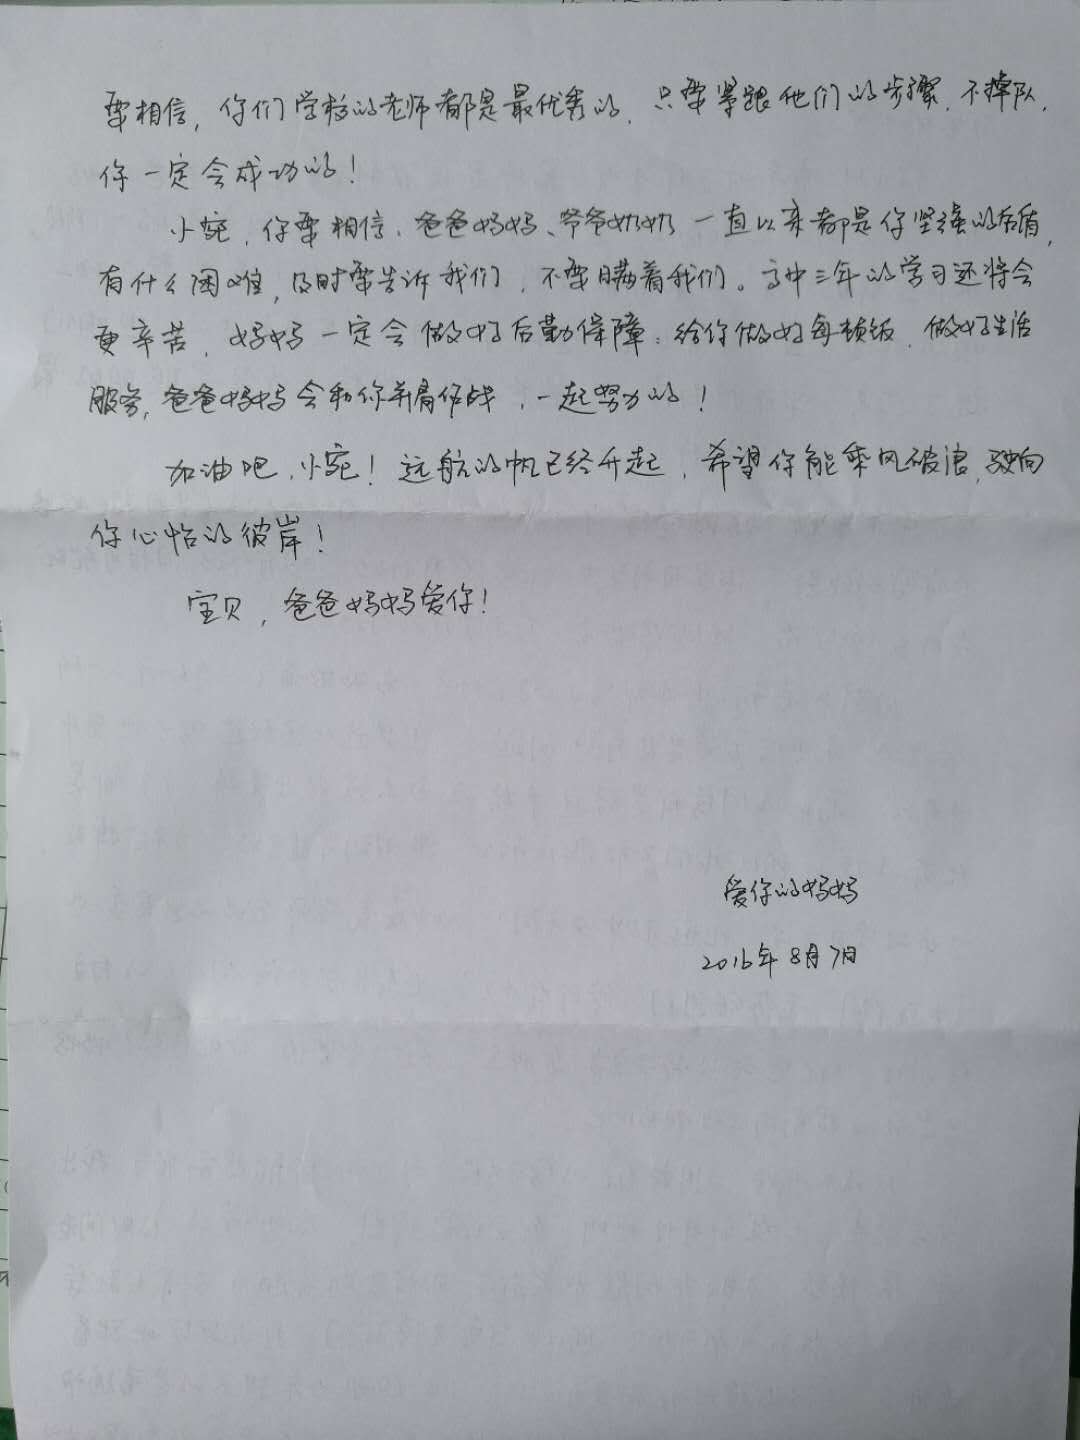 要相信，你们学校的老师都是最优秀的，只要紧跟他们的步骤，不掉队，
你一定会成功的！
小宛，你要相信，爸爸妈妈、爷爷奶奶一直以来都是你坚强的后盾，
有什么困难，及时要告诉我们，不要瞒着我们。高中三年的学习还将会
更辛苦，妈妈一定会做好后勤保障：给你做好每顿饭，做好生活
服务，爸爸妈妈会和你并肩作战，一起努力的！
加油吧，小宛！远航的帆已经升起，希望你能乘风破浪，驶向
你心怡的彼岸！
宝贝，爸爸妈妈爱你！
爱你的妈妈
2016年8月7日